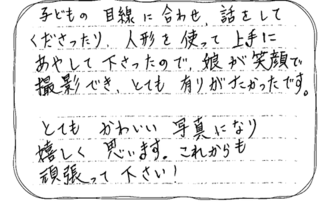 子どもの目線に合わせ、話をして
くださったり、人形を使って上手に
あやして下さったので、娘が笑顔で
撮影でき、とても有りがたかったです。
とてもかわいい写真になり
嬉しく思います。これからも
頑張って下さい!